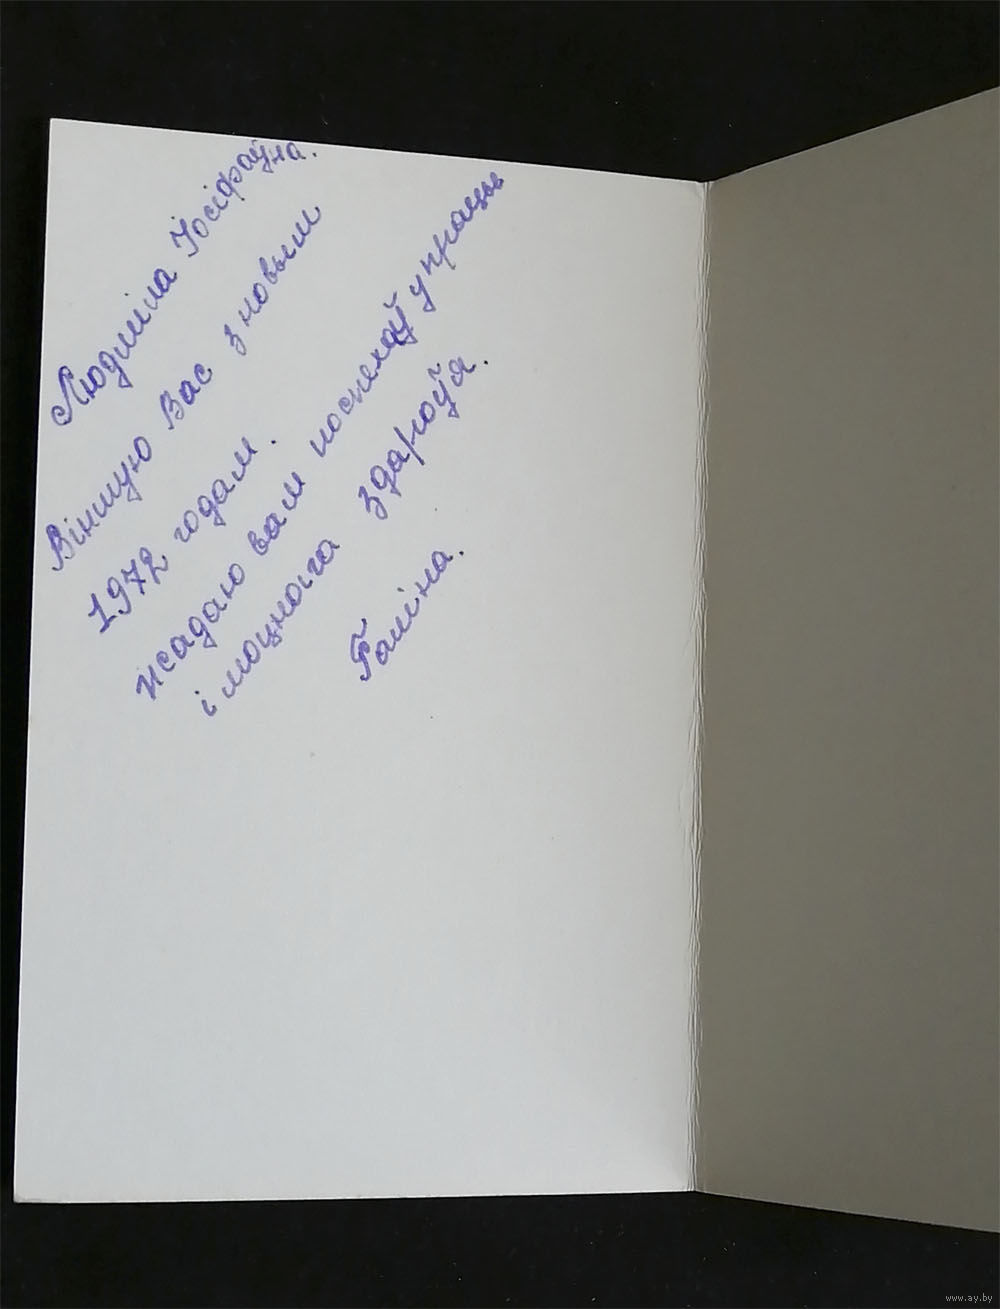 Людміла Іосіфаўна.
Віншую Вас з новым
1972 годам.
жадаю вам поспехаў у працы
і моцнага здароўя.
Галіна.
www.ay.by